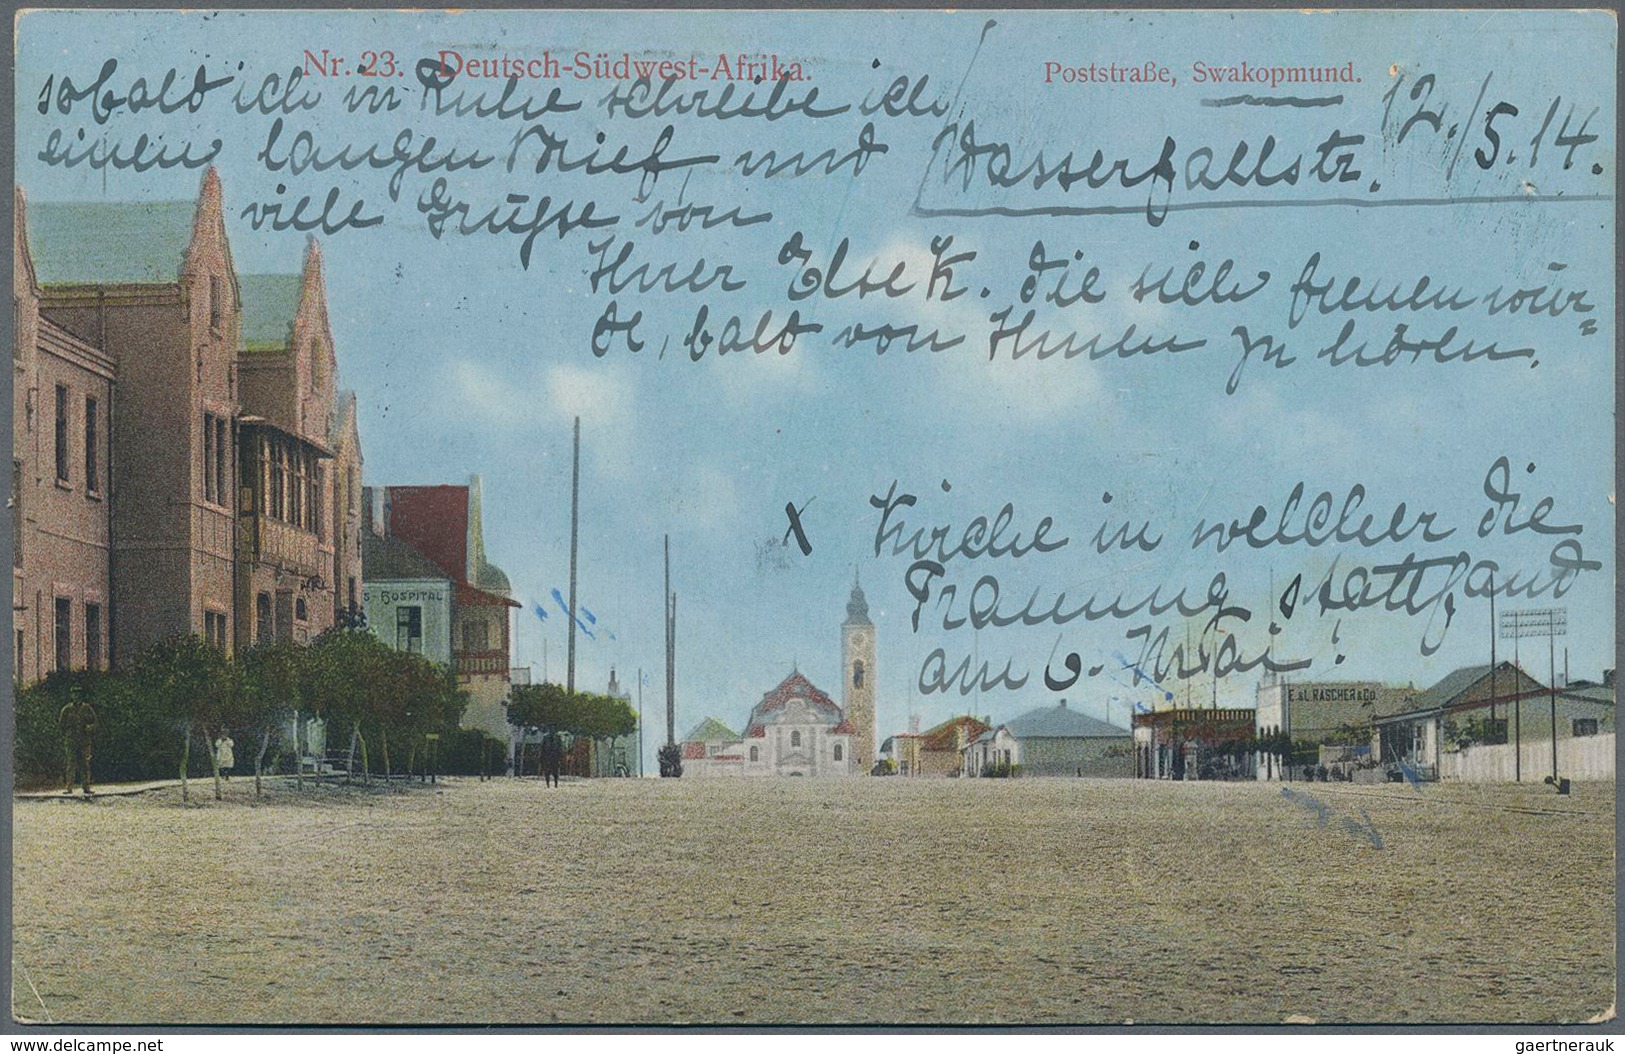 Nr. 23. Deutsch-Südwest-Afrika.
Poststraße, Swakopmund.
12./5.14.
Wasserfallstr.
sobald ich in Ruhe schreibe ich
einen langen Brief, und
viele Grüsse von
Ihrer Else K. die sich freuen wür-
de, bald von Ihnen zu hören.
x Kirche in welcher die
Trauung stattfand
am 6. Mai!
S HOSPITAL
E. & L. RASCHER & Co.
www.delcampe.net
gaertnerauk